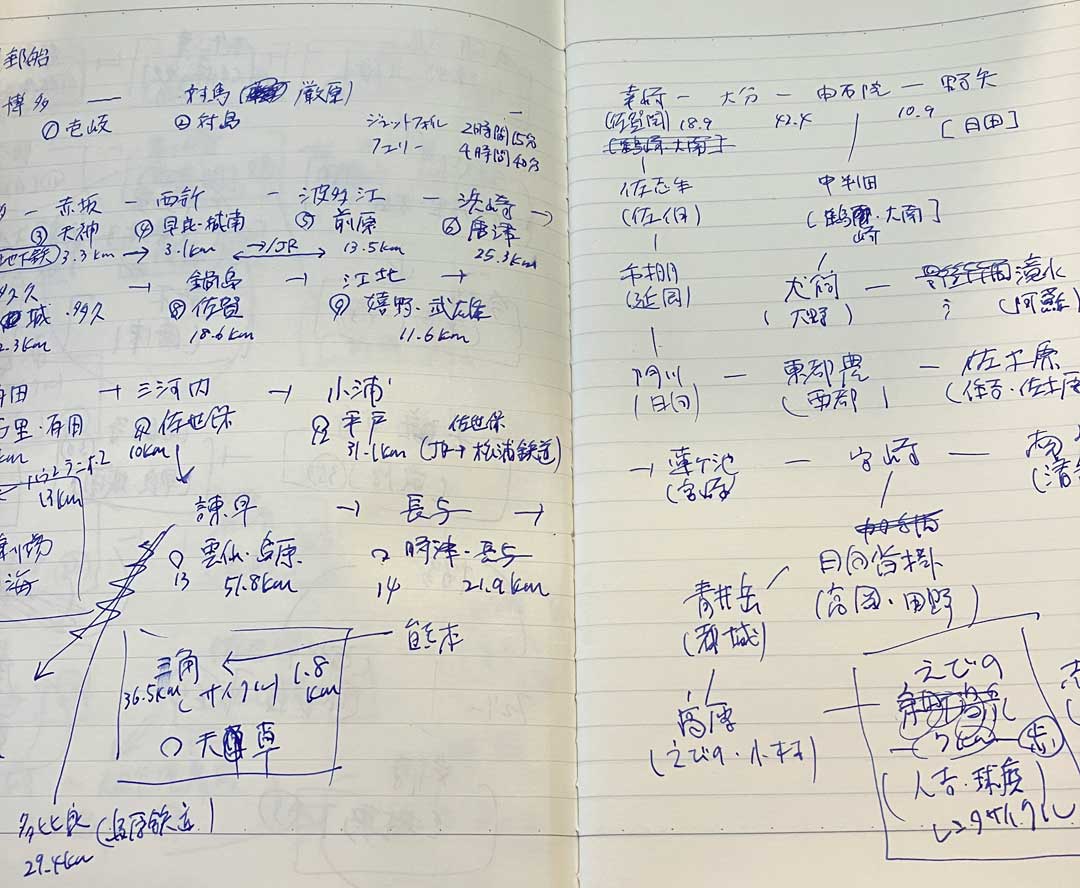 郵船
博多 — 対馬 (厳原)
① 壱岐 ② 対馬
ジェットフォイル 2時間15分
フェリー 4時間40分
— 赤坂 — 西新 — 波多江 — 浜崎 →
③ 天神 ④ 早良・城南 ⑤ 前原 ⑥ 唐津
地下鉄 3.3km → 3.1km ←→/JR→ 13.5km 25.3km
多久 → 鍋島 → 江北 →
城・多久 ⑧ 佐賀 ⑨ 嬉野・武雄
18.6km 11.6km
有田 → 三河内 → 小浦
里・有田 佐世保 12 平戸 佐世保
10km 31.1km (JR→松浦鉄道)
13km
劇場
海
諫早 → 長与 →
13 雲仙・島原 14 時津・長与
51.8km 21.9km
三角 ← 熊本
36.5km (サイクル) 1.8km
○ 天草
多比良 (島原鉄道)
29.4km
幸崎 — 大分 — 由布院 — 野矢
(佐賀関) 18.9 42.4 10.9 [日田]
佐志生 中判田
(佐伯) (鶴崎・大南]
市棚 犬飼 — 滝水
(延岡) (大野) (阿蘇)
(日向) — 東都農 — 佐土原
(西都) (住吉・佐土原
→ 蓮ケ池 — 宮崎 —
(宮崎)
日向沓掛
青井岳 (高岡・田野)
(都城)
高原 — えびの
(えびの・小林)
7km 歩
(人吉・球磨)
レンタサイクル